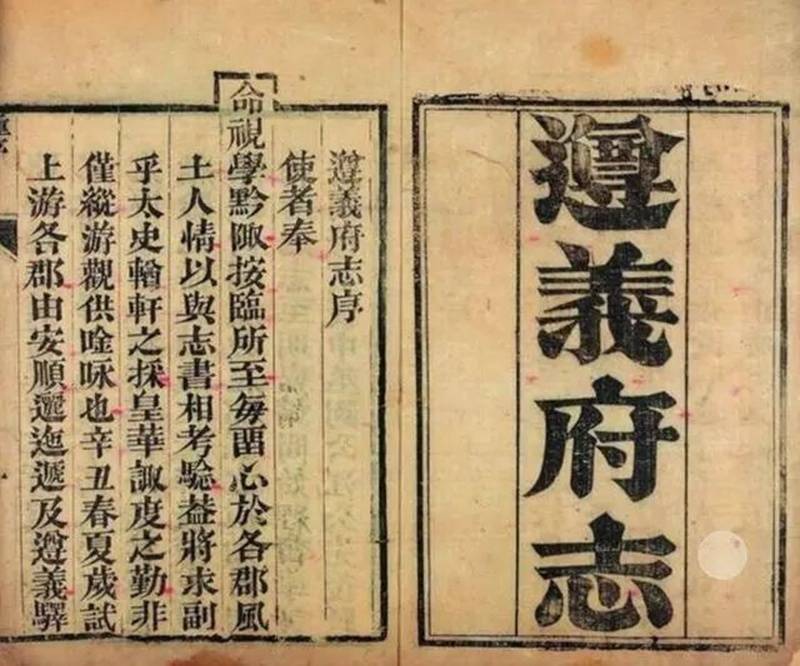 遵義府志
遵義府志序
使者奉
命視學黔陬按臨所至每畱心於各郡風
土人情以與志書相考驗葢將求副
乎太史輶軒之採皇華諏度之勤非
僅縱游觀供唫咏也辛丑春夏歲試
上游各郡由安順邐迤遞及遵義驛